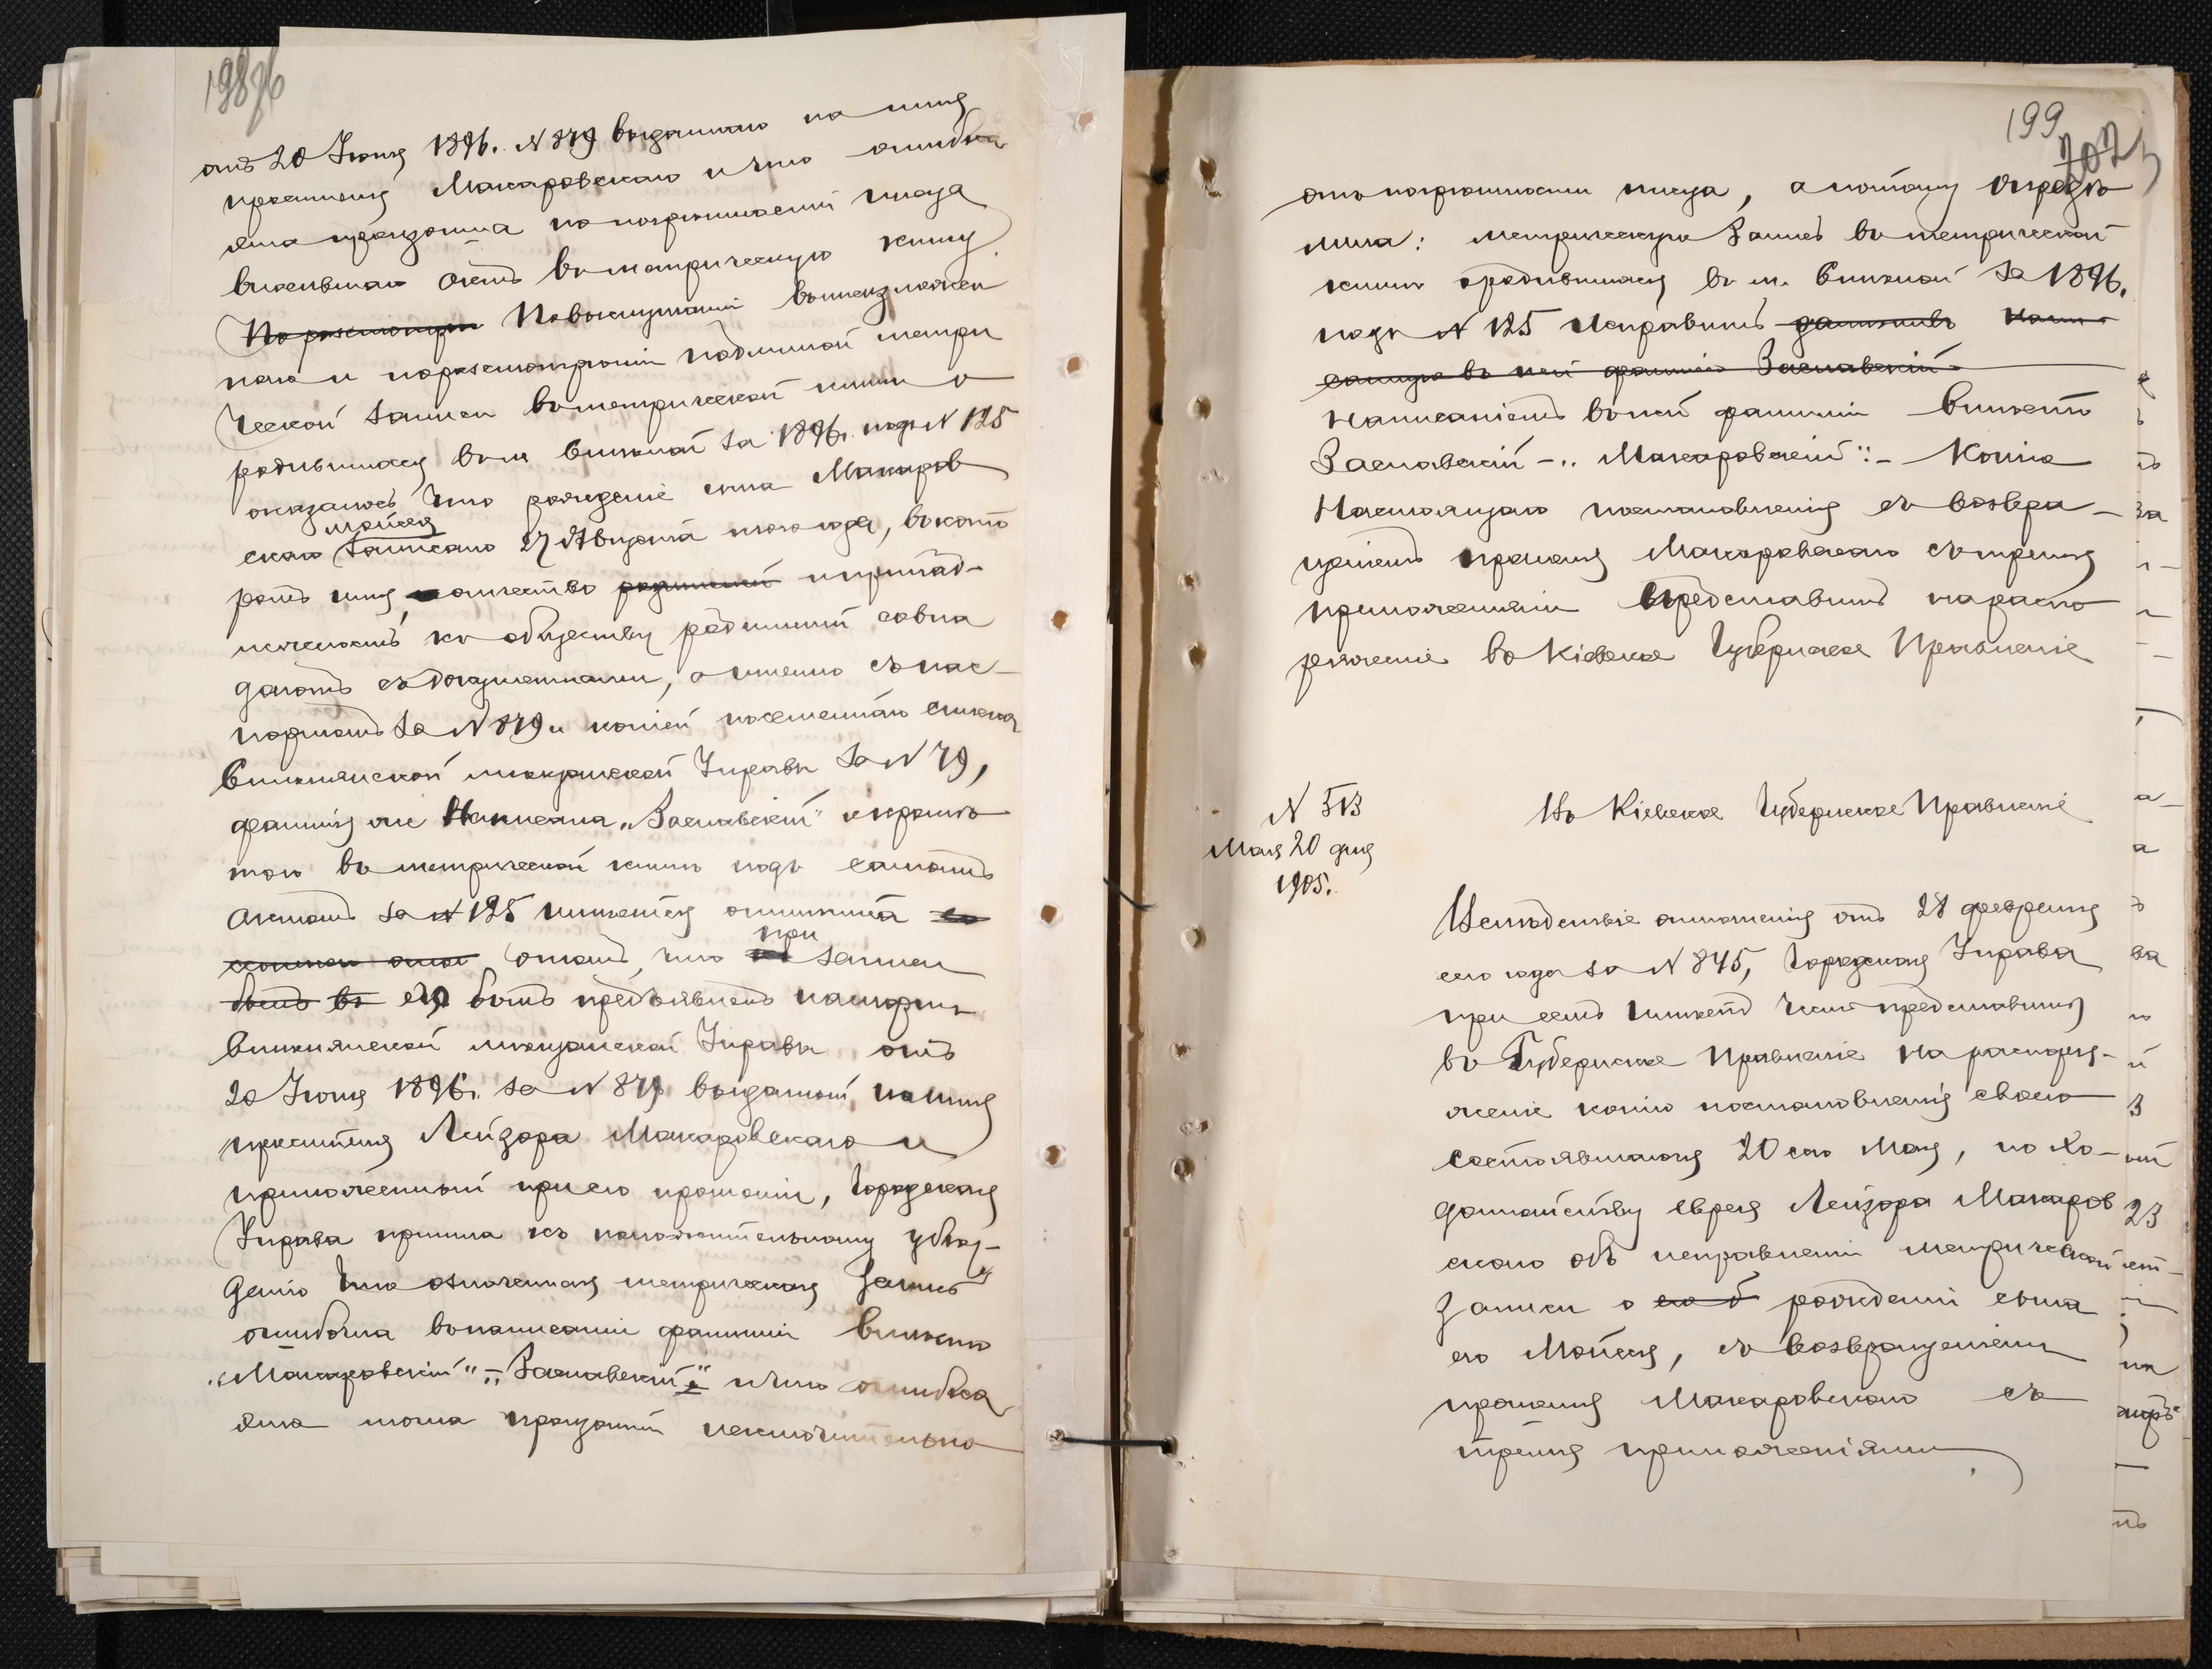 198 об
отъ 20 Іюня 1896г. N 879 выданнаго на имя
просителя Макаровскаго и что ошибка
эта произошла по погрѣшности писца
вносившаго актъ въ метрическую книгу.
По разсмотрѣ По выслушаніи вышеизложен
наго и поразсмотрѣніи подлинной метри
ческой записи въ метрической книгѣ о
родившихся въ м. Смѣлой за 1896г. подъ N 125
оказалось что рожденіе сына Макаров
скаго Мойсея записано 27 Августа того года, въ кото
ромъ имя, отчество родителей и принад-
лежность къ обществу родителей совпа
даютъ съ документами, а именно съ пас-
портомъ за N 879 и копіей посемейнаго списка
Смѣлянской мѣщанской Управы за N 79,
фамилія же написана „Заславскій" и кромѣ
того въ метрической книгѣ подъ самымъ
актомъ за N 125 имѣется отмѣтка
о томъ, что при записи
былъ въ его былъ предъявленъ паспортъ
Смѣлянской мѣщанской Управы отъ
20 Іюня 1896г. за N 879 выданный на имя
просителя Лейзора Макаровскаго и
приложенный при его прошеніи, Городская
Управа пришла къ положительному убѣж-
денію что означенная метрическая запись
ошибочна въ написаніи фамиліи вмѣсто
„Макаровскій" – „Заславскій" и что ошибка
эта могла произойти исключительно
199
202
отъ погрѣшности писца, а потому опредѣ
лила: метрическую запись въ метрической
книгѣ о родившихся въ м. Смѣлой за 1896г.
подъ N 125 исправить напи-
санную въ ней фамилію Заславскій
написаніемъ въ ней фамиліи вмѣсто
Заславскій – „Макаровскій". – Копію
настоящаго постановленія съ возвра-
щеніемъ прошенія Макаровскаго съ тремя
приложеніями представить на распо
ряженіе въ Кіевское Губернское Правленіе
N 513
Мая 20 дня
1905г.
Въ Кіевское Губернское Правленіе
Вслѣдствіе отношенія отъ 28 февраля
сего года за N 845, Городская Управа
при семъ имѣетъ честь представить
въ Губернское Правленіе на распоря-
женіе копію постановленія своего
состоявшагося 20 сего Мая, по хо-
датайству еврея Лейзора Макаров
скаго объ исправленіи метрической
записи о рожденіи сына
его Мойсея, съ возвращеніемъ
прошенія Макаровскаго съ
тремя приложеніями.